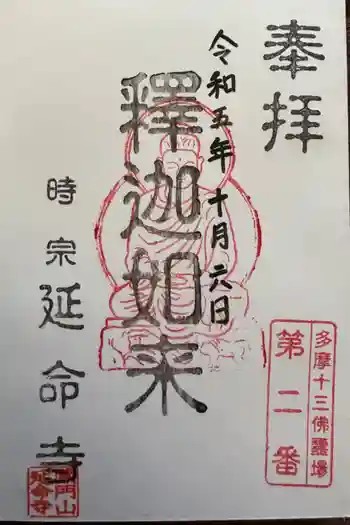 奉拝
令和五年十月六日
釋迦如来
時宗延命寺
多摩十三佛霊場
第二番
延命寺